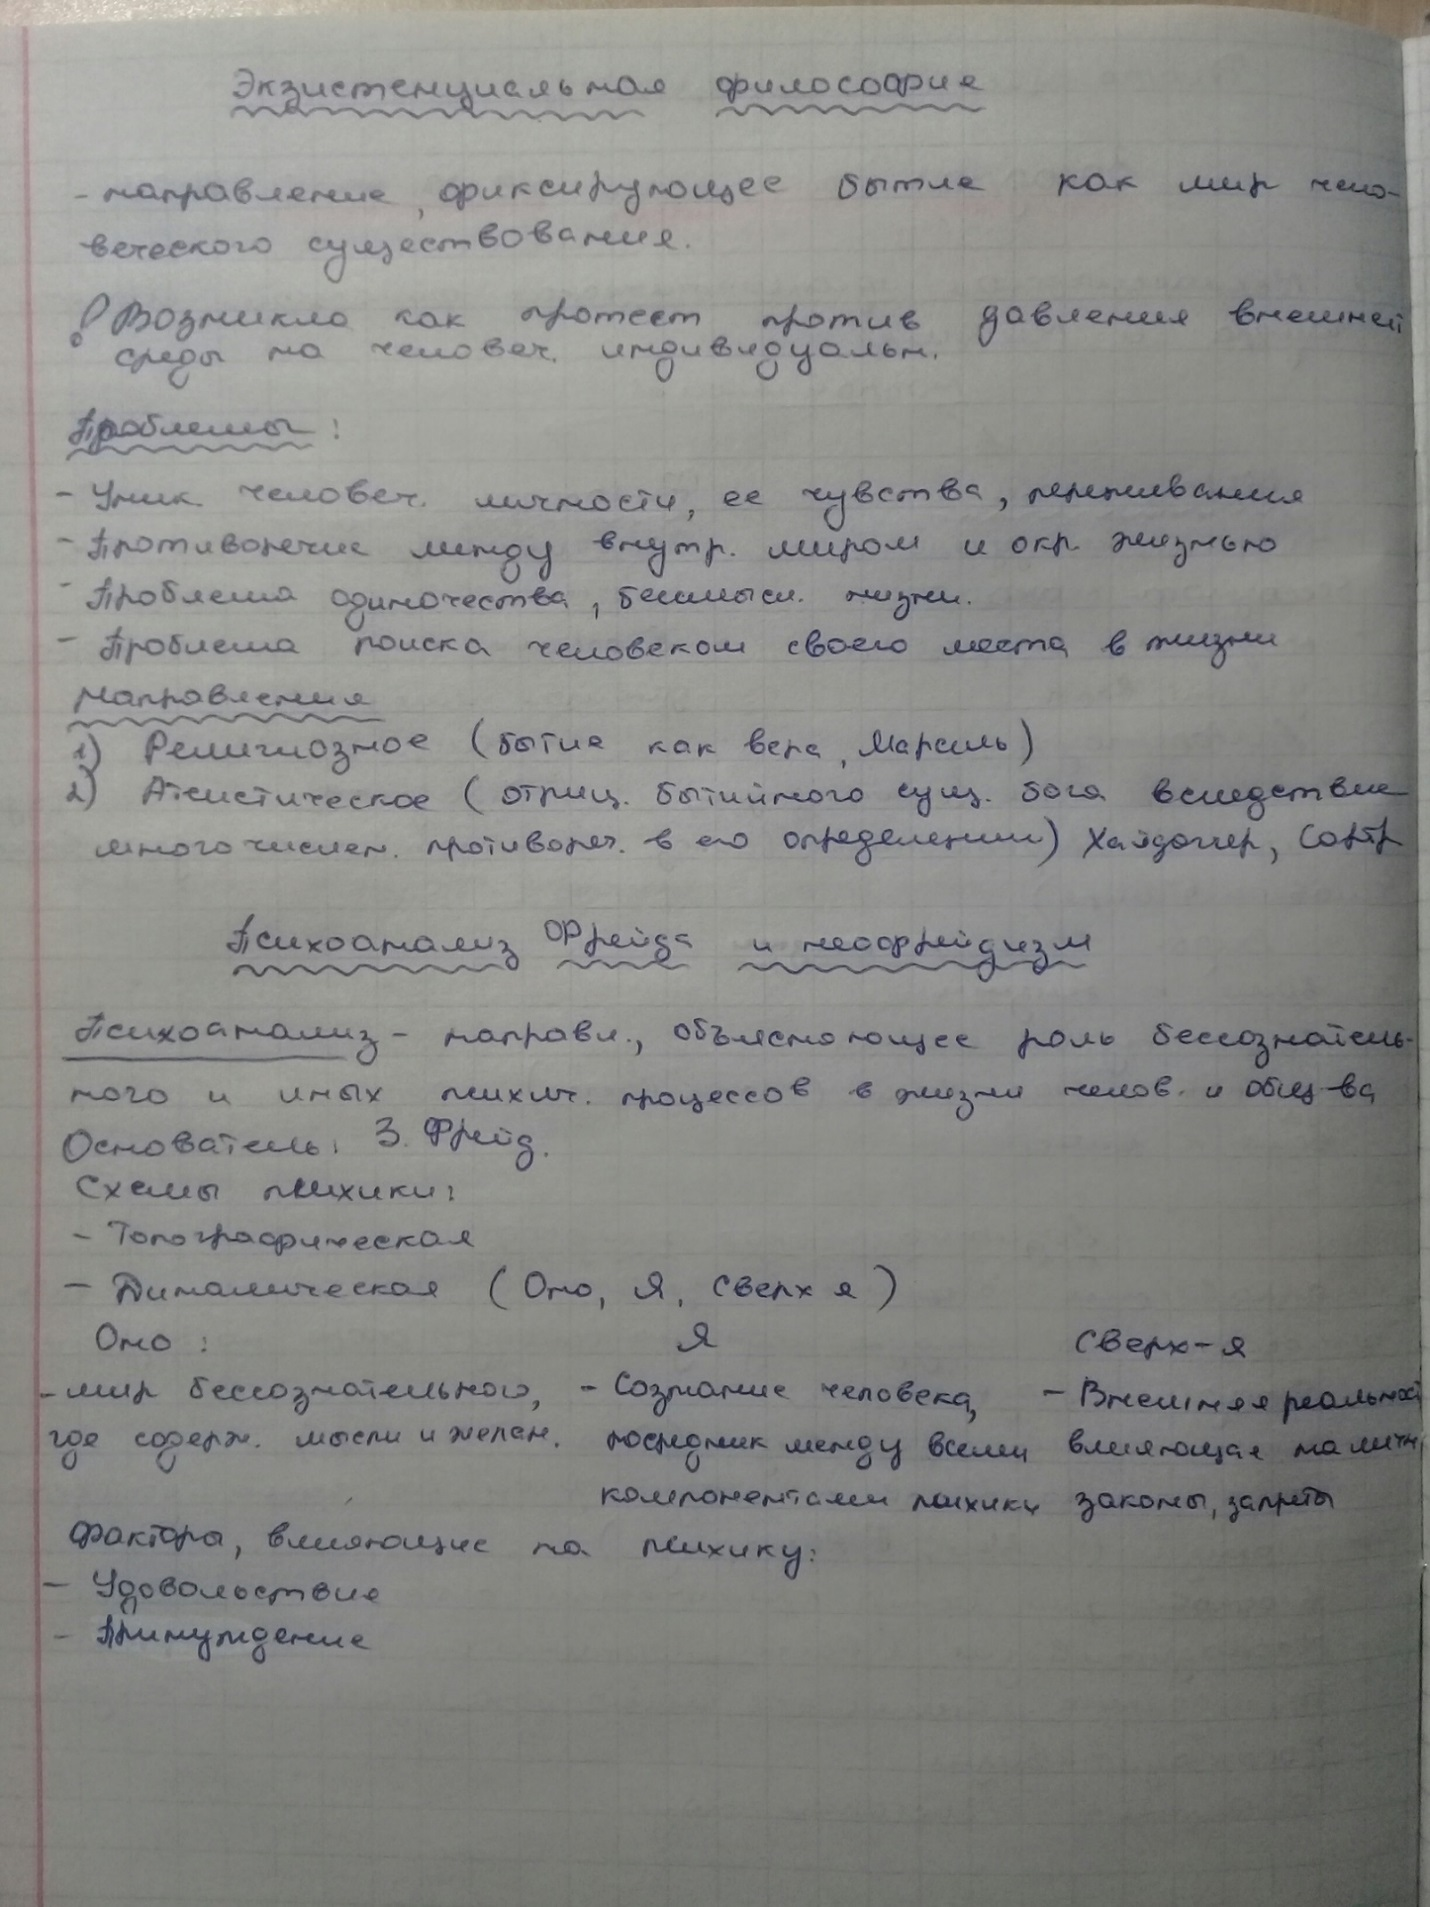 Экзистенциальная философия
- направление, фиксирующее бытие как мир чело-
веческого существования.
! Возникло как протест против давления внешней
среды на человеч. индивидуальн.
Проблемы:
- Уник человеч. личности, ее чувства, переживания
- Противоречие между внутр. миром и окр. жизнью
- Проблема одиночества, бессмысл. жизни.
- Проблема поиска человеком своего места в жизни
Направления
1) Религиозное (бытие как вера, Марсель)
2) Атеистическое (отриц. бытийного сущ. бога вследствие
многочислен. противореч. в его определении) Хайдеггер, Сартр
Психоанализ Фрейда и неофрейдизм
Психоанализ - направл., объясняющее роль бессознатель-
ного и иных психич. процессов в жизни челов. и общ-ва
Основатель: З. Фрейд.
Схемы психики:
- Топографическая
- Динамическая (Оно, Я, Сверх я)
Оно: Я Сверх-я
- мир бессознательного, - Сознание человека, - Внешняя реальност
где содерж. мысли и желан. посредник между всеми влияющая на личн
компонентами психики законы, запреты
Фактора, влияющие на психику:
- Удовольствие
- Принуждение